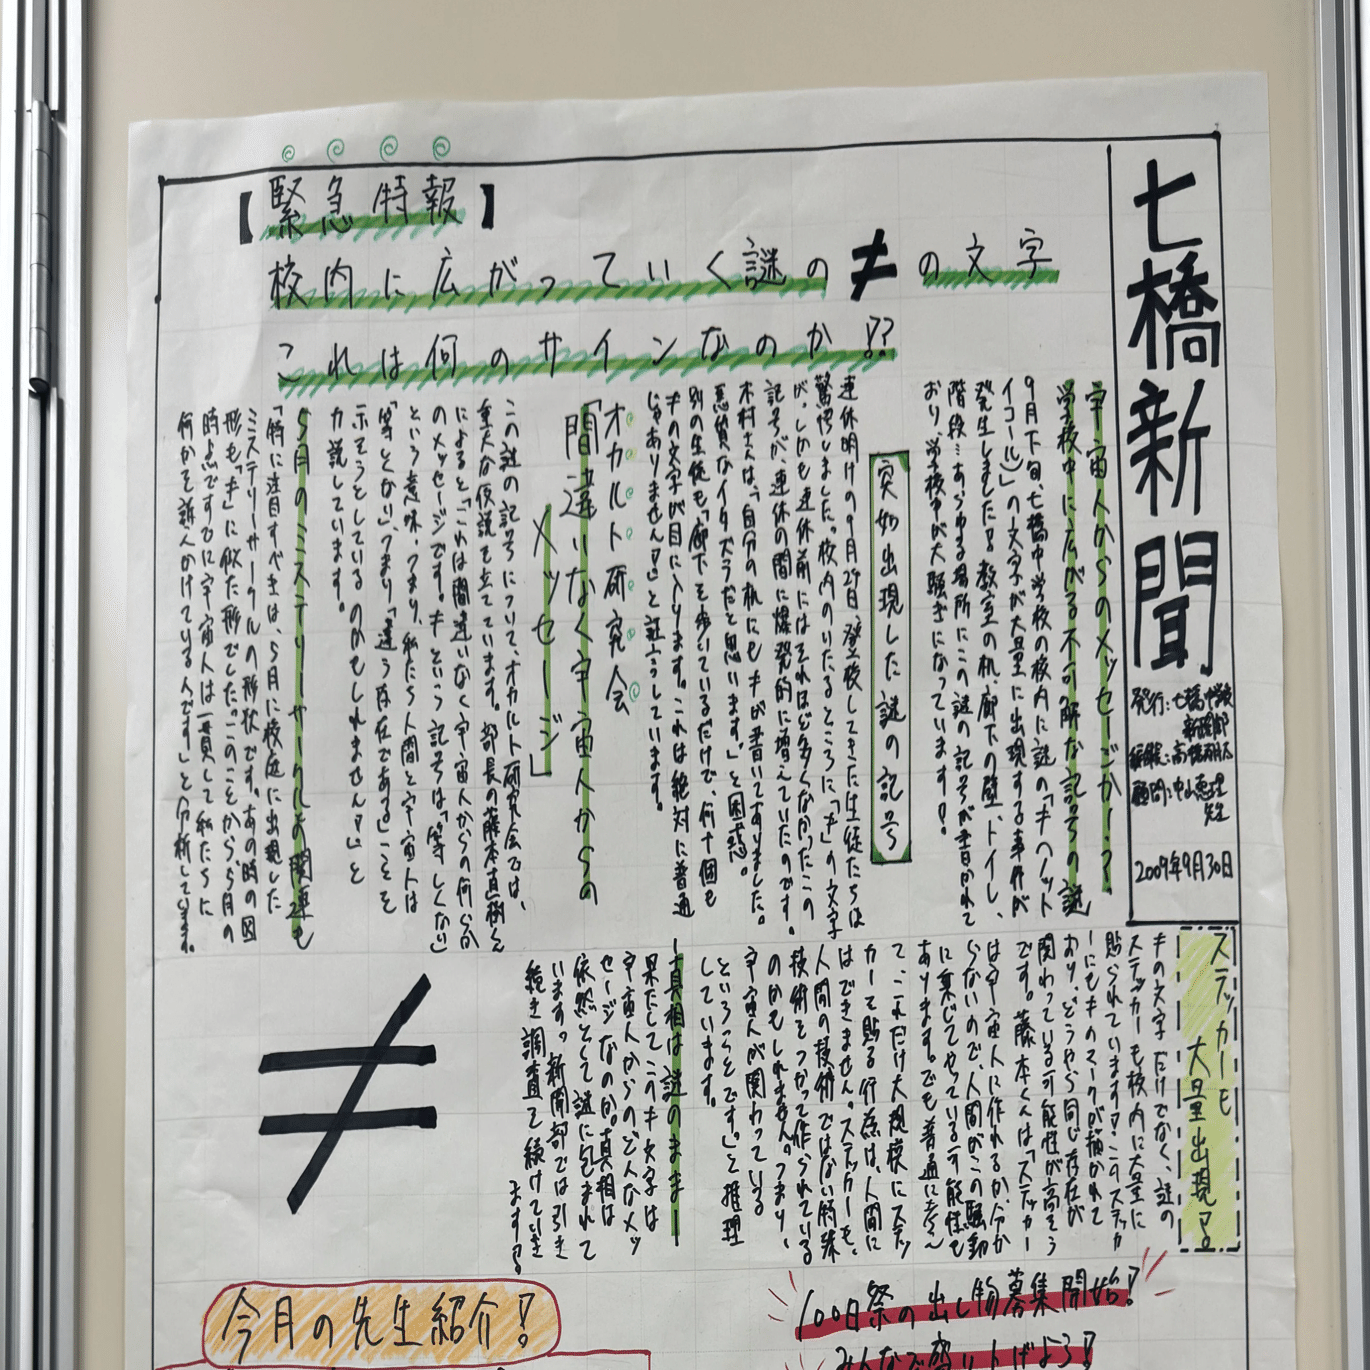 七橋新聞
発行:七橋中学校
新聞部
編集:高橋朋広
顧問:中山恵理
先生
2009年9月30日
【緊急特報】
校内に広がっていく謎の≠の文字
これは何のサインなのか!??
宇宙人からのメッセージか!?
学校中に広がる不可解な記号の謎
9月下旬、七橋中学校の校内に謎の「≠(ノット
イコール)」の文字が大量に出現する事件が
発生しました!教室の机、廊下の壁、トイレ、
階段…あらゆる場所にこの謎の記号が書かれて
おり、学校中が大騒ぎになっています!
突如出現した謎の記号
連休明けの9月24日、登校してきた生徒たちは
驚愕しました。校内のいたるところに「≠」の文字
が。しかも連休前にはそれほど多くなかったこの
記号が、連休の間に爆発的に増えていたのです。
木村さんは、「自分の机にも≠が書いてありました。
悪質なイタズラだと思います」と困惑。
別の生徒も「廊下を歩いているだけで、何十個も
≠の文字が目に入ります。これは絶対に普通
じゃありません!」と証言しています。
オカルト研究会
「間違いなく宇宙人からの
メッセージ」
この謎の記号について、オカルト研究会では、
重大な仮説を立てています。部長の藤本直樹くん
によると「これは間違いなく宇宙人からの何らか
のメッセージです。≠という記号は「等しくない」
という意味。つまり、私たち人間と宇宙人は
「等しくない」、つまり「違う存在である」ことを
示そうとしているのかもしれません!」と
力説しています。
5月のミステリーサークルとの関連も
「特に注目すべきは、5月に校庭に出現した
ミステリーサークルの形状です。あの時の図
形も「≠」に似た形でした。このことから5月の
時点ですでに宇宙人は一貫して私たちに
何かを訴えかけているんです」と分析しています。
ステッカーも
大量出現!
≠の文字だけでなく、謎の
ステッカーも校内に大量に
貼られています!このステッカ
ーにも≠のマークが描かれて
おり、どうやら同じ存在が
関わっている可能性が高そう
です。藤本くんは「ステッカー
は宇宙人に作れるか分か
らないので、人間がこの騒動
に乗じてやっている可能性も
あります。でも普通に考え
て、これだけ大規模にステッ
カーを貼る行為は、人間に
はできません。ステッカーも、
人間の技術ではない特殊
技術をつかって作られている
のかもしれません。つまり、
宇宙人が関わっている
ということです。」と推理
しています。
ー真相は謎のままー
果たしてこの≠文字は
宇宙人からのどんなメッ
セージなのか。真相は
依然として謎に包まれて
います。新聞部では引き
続き調査を続けていき
ます!
≠
今月の先生紹介!
100日祭の出し物募集開始!
みんなで盛り上げよう!